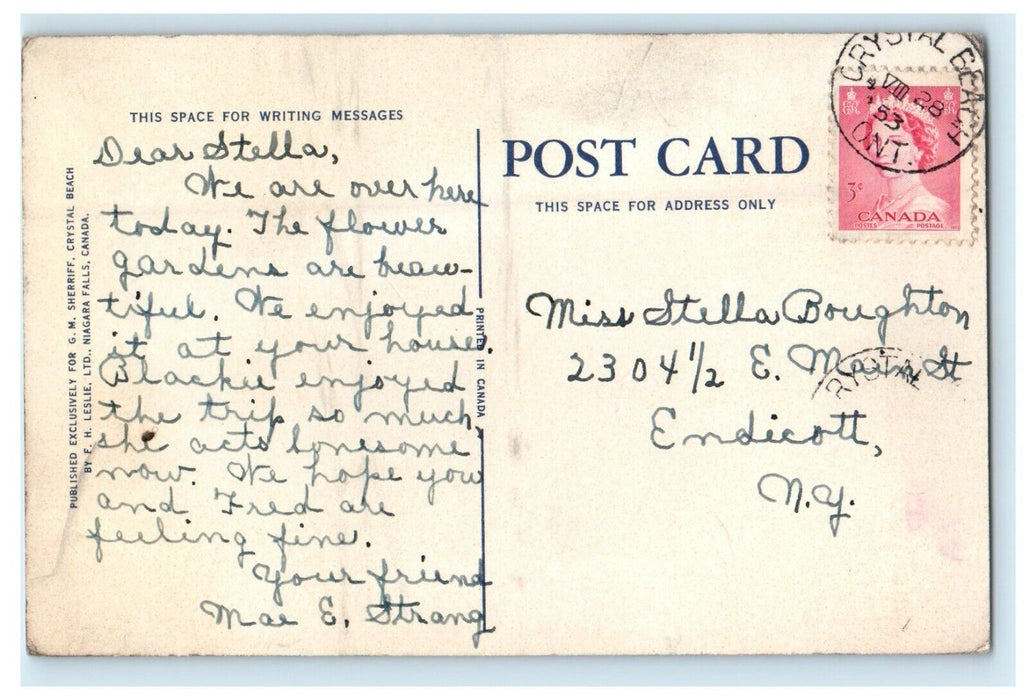 THIS SPACE FOR WRITING MESSAGES
Dear Stella,
We are over here
today. The flower
gardens are beau-
tiful. We enjoyed
it at your house.
Blackie enjoyed
the trip so much,
she acts lonesome
now. We hope you
and Fred are
feeling fine.
Your friend
Mae E. Strang
PUBLISHED EXCLUSIVELY FOR G. M. SHERRIFF, CRYSTAL BEACH
BY F. H. LESLIE, LTD., NIAGARA FALLS, CANADA.
PRINTED IN CANADA
POST CARD
THIS SPACE FOR ADDRESS ONLY
CRYSTAL BEACH
VIII 28
53
ONT.
3¢
CANADA
POSTES POSTAGE
Miss Stella Boughton
2304 1/2 E. Main St
RYSTAL
Endicott,
N.Y.